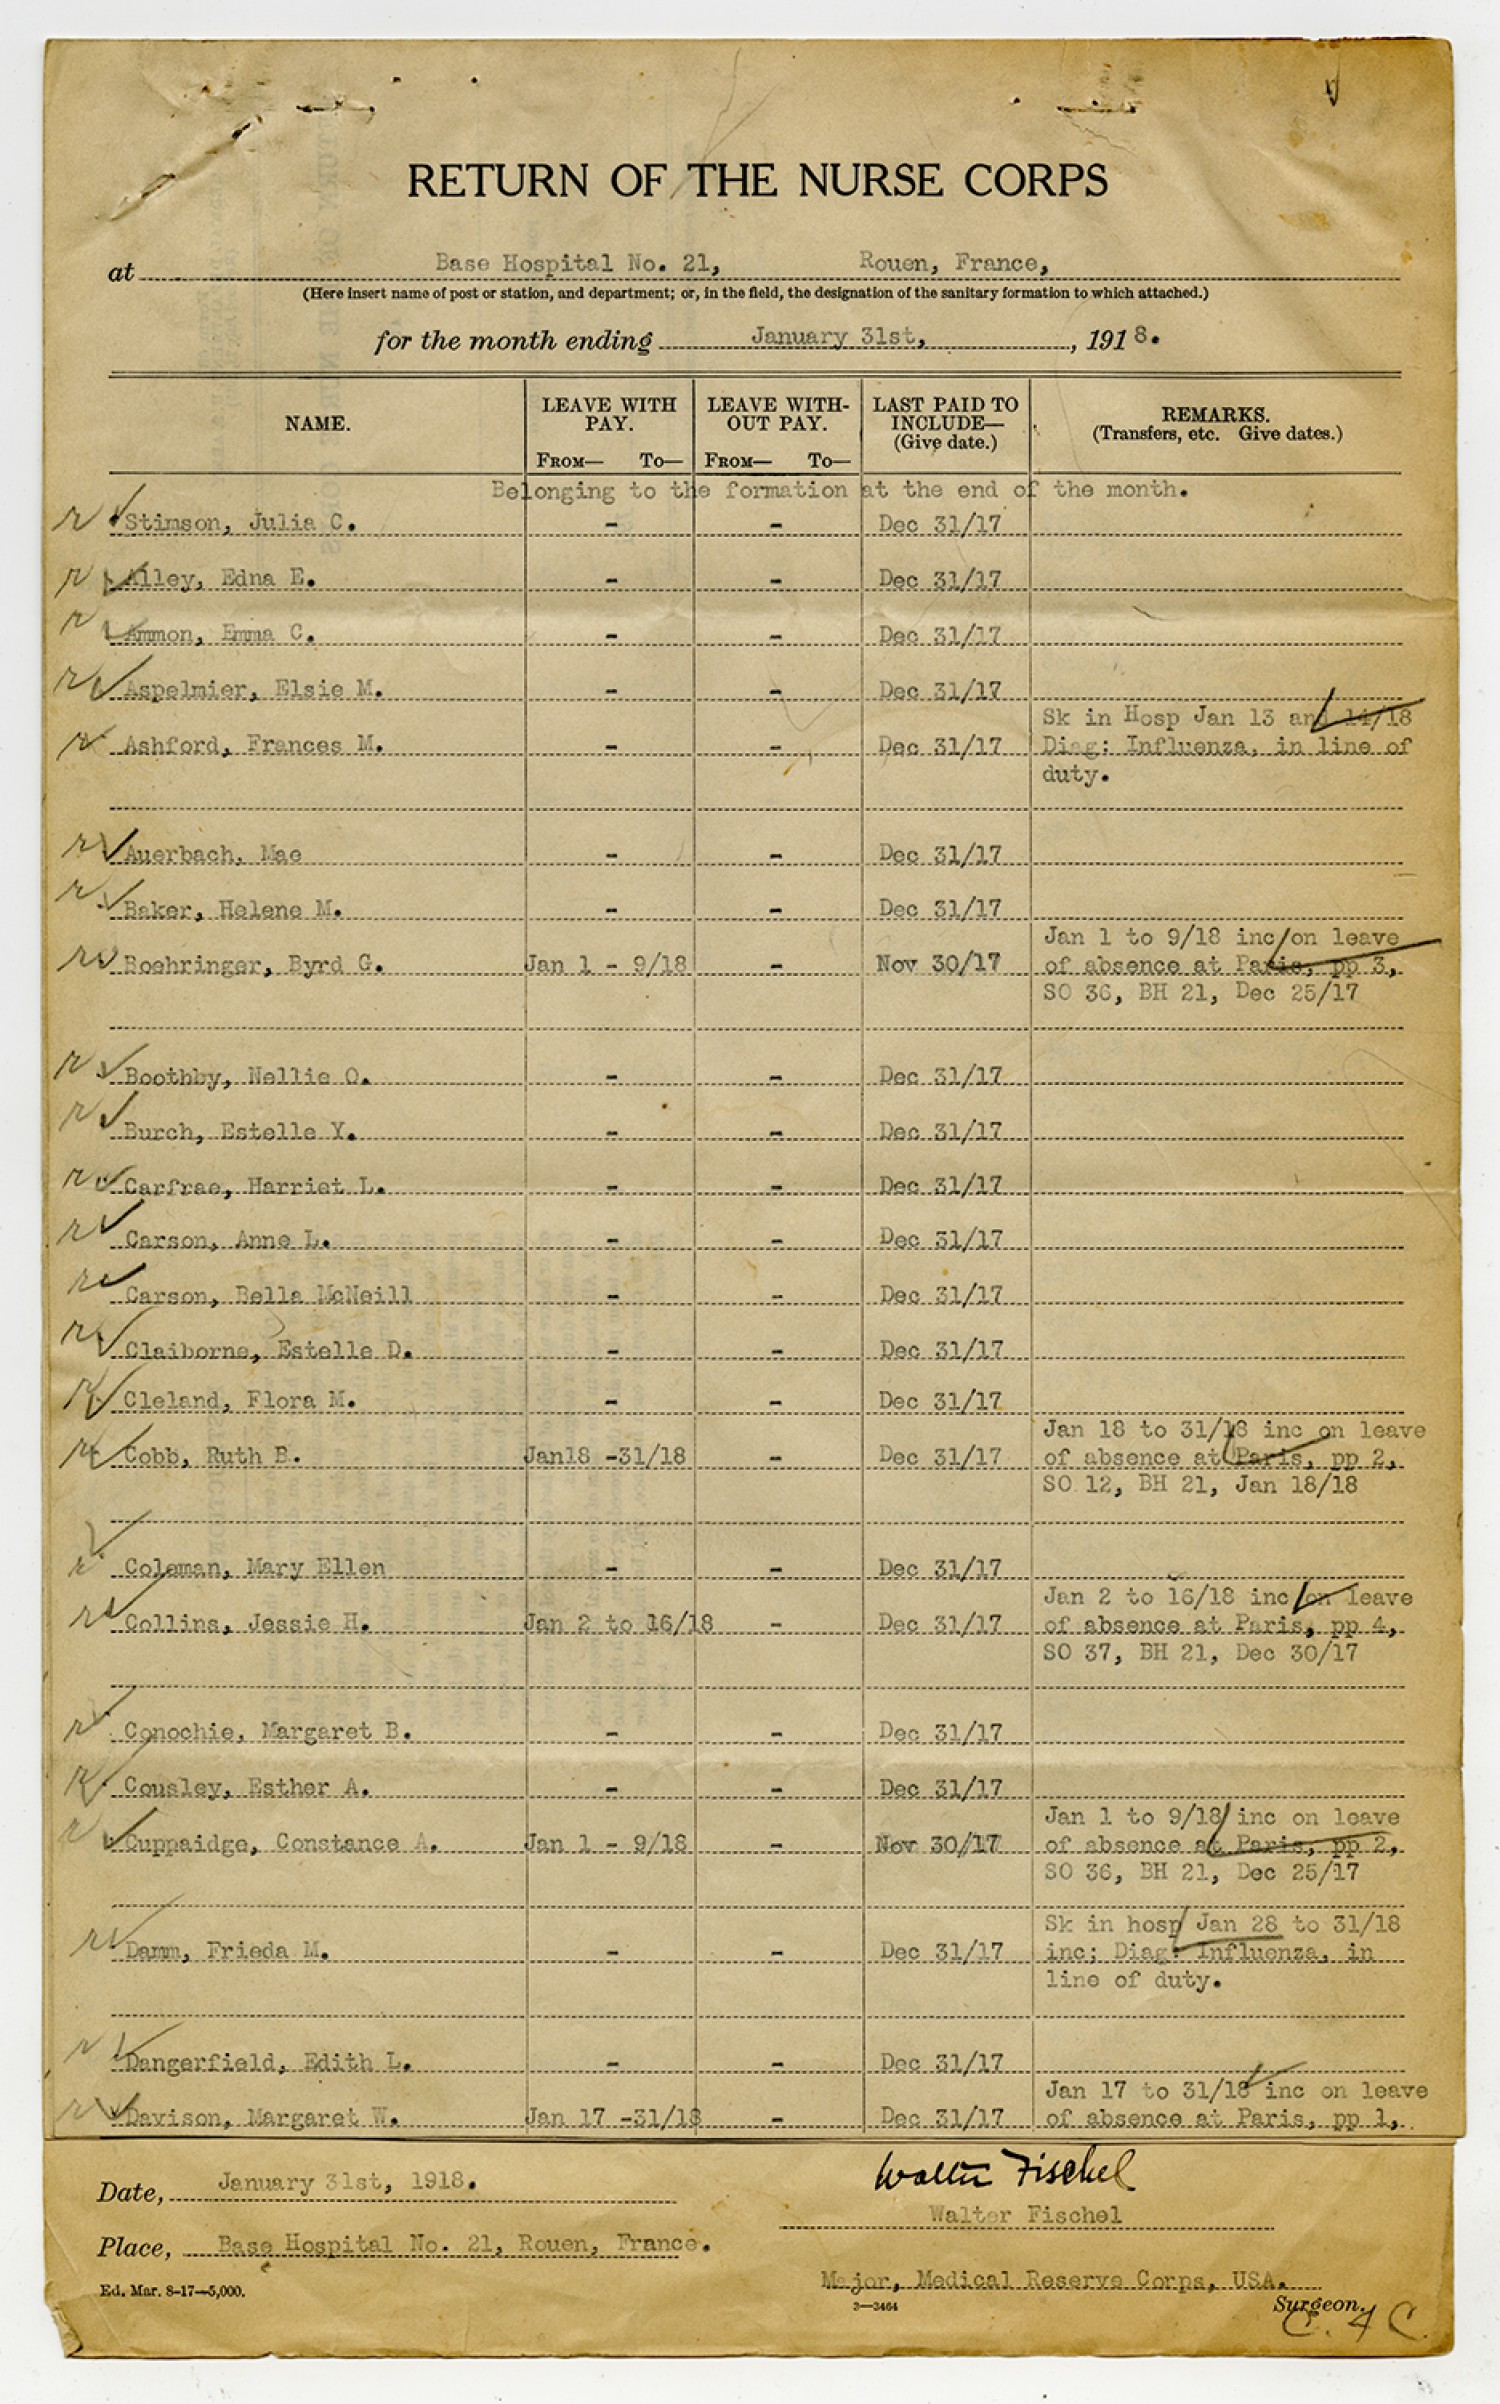 RETURN OF THE NURSE CORPS
at Base Hospital No. 21, Rouen, France,
(Here insert name of post or station, and department; or, in the field, the designation of the sanitary formation to which attached.)
for the month ending January 31st, , 1918.
NAME. LEAVE WITH PAY. LEAVE WITH-OUT PAY. LAST PAID TO INCLUDE— (Give date.) REMARKS. (Transfers, etc. Give dates.)
FROM— TO— FROM— TO—
Belonging to the formation at the end of the month.
r Stimson, Julia C. - - Dec 31/17
r Alley, Edna E. - - Dec 31/17
r Ammon, Emma C. - - Dec 31/17
r Aspelmier, Elsie M. - - Dec 31/17
Sk in Hosp Jan 13 and 14/18
r Ashford, Frances M. - - Dec 31/17 Diag: Influenza, in line of
duty.
r Auerbach, Mae - - Dec 31/17
r Baker, Helene M. - - Dec 31/17
Jan 1 to 9/18 inc on leave
r Boehringer, Byrd G. Jan 1 - 9/18 - Nov 30/17 of absence at Paris, pp 3,
SO 36, BH 21, Dec 25/17
r Boothby, Nellie O. - - Dec 31/17
r Burch, Estelle Y. - - Dec 31/17
r Carfrae, Harriet L. - - Dec 31/17
r Carson, Anne L. - - Dec 31/17
r Carson, Bella McNeill - - Dec 31/17
r Claiborne, Estelle D. - - Dec 31/17
r Cleland, Flora M. - - Dec 31/17
Jan 18 to 31/18 inc on leave
r Cobb, Ruth B. Jan18 -31/18 - Dec 31/17 of absence at Paris, pp 2,
SO 12, BH 21, Jan 18/18
r Coleman, Mary Ellen - - Dec 31/17
Jan 2 to 16/18 inc on leave
r Collins, Jessie H. Jan 2 to 16/18 - Dec 31/17 of absence at Paris, pp 4,
SO 37, BH 21, Dec 30/17
r Conochie, Margaret B. - - Dec 31/17
r Cousley, Esther A. - - Dec 31/17
Jan 1 to 9/18 inc on leave
r Cuppaidge, Constance A. Jan 1 - 9/18 - Nov 30/17 of absence at Paris, pp 2,
SO 36, BH 21, Dec 25/17
Sk in hosp Jan 28 to 31/18
r Damm, Frieda M. - - Dec 31/17 inc; Diag: Influenza, in
line of duty.
r Dangerfield, Edith L. - - Dec 31/17
Jan 17 to 31/18 inc on leave
r Davison, Margaret W. Jan 17 -31/18 - Dec 31/17 of absence at Paris, pp 1,
Walter Fischel
Date, January 31st, 1918.
Walter Fischel
Place, Base Hospital No. 21, Rouen, France.
Major, Medical Reserve Corps, USA.
Ed. Mar. 8-17—5,000.
2—3464
Surgeon.